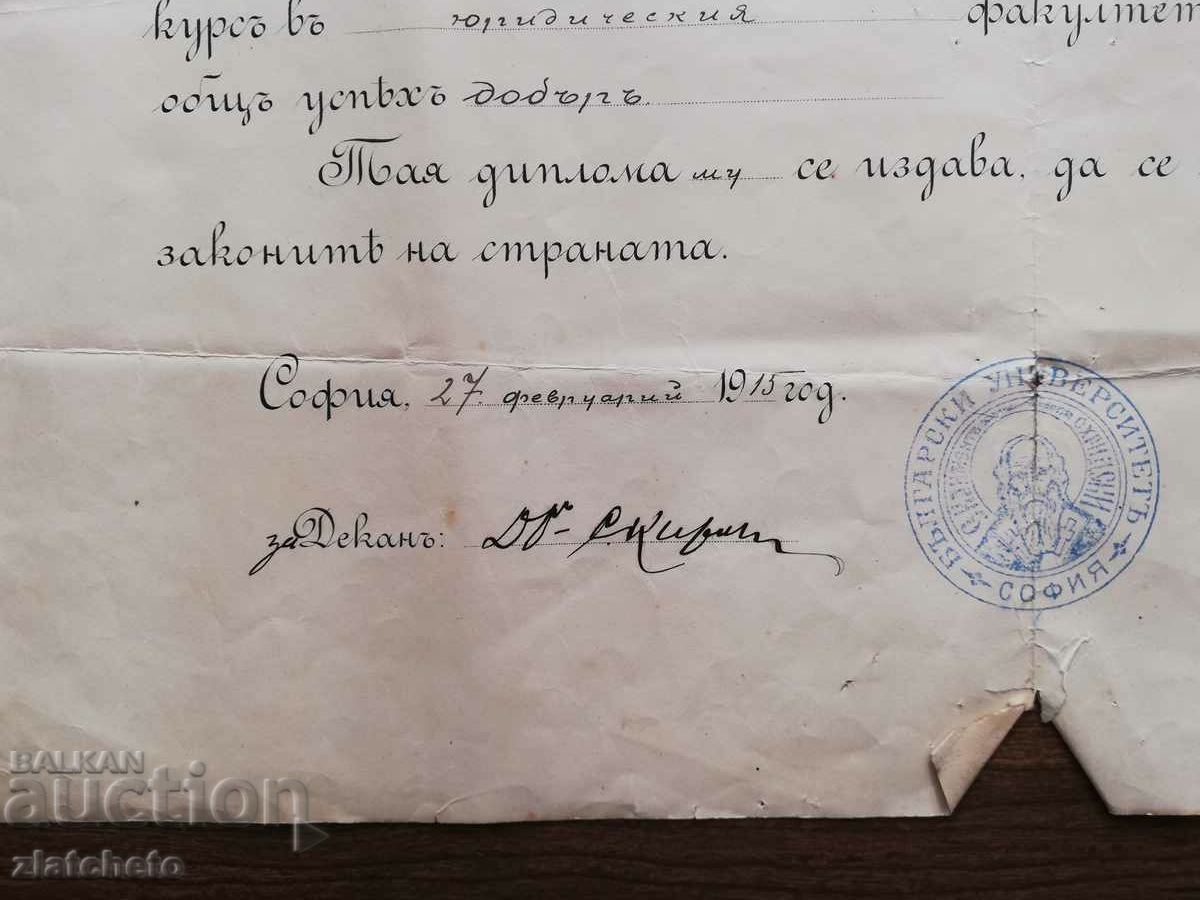 курсъ въ юридическия факултет
общъ успѣхъ добъръ.
Тая диплома му се издава, да се
законитѣ на страната.
София, 27. февруарий 1915 год.
за Деканъ: Др-
БЪЛГАРСКИ УНИВЕРСИТЕТЪ
СОФИЯ
BALKAN
auction
zlatcheto